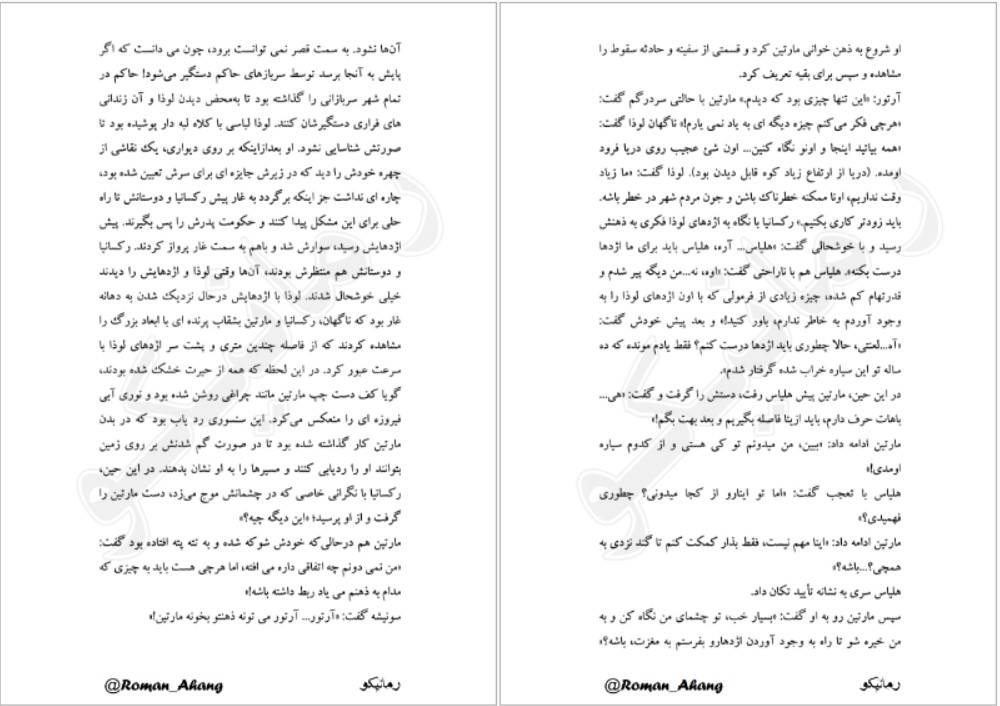 آن‌ها نشود. به سمت قصر نمی توانست برود، چون می دانست که اگر
پایش به آنجا برسد توسط سربازهای حاکم دستگیر می‌شود! حاکم در
تمام شهر سربازانی را گذاشته بود تا به‌محض دیدن لوذا و آن زندانی
های فراری دستگیرشان کنند. لوذا لباسی با کلاه لبه دار پوشیده بود تا
صورتش شناسایی نشود. او بعدازاینکه بر روی دیواری، یک نقاشی از
چهره خودش را دید که در زیرش جایزه ای برای سرش تعیین شده بود،
چاره ای نداشت جز اینکه برگردد به غار پیش رکسانیا و دوستانش تا راه
حلی برای این مشکل پیدا کنند و حکومت پدرش را پس بگیرند. پیش
اژدهایش رسید، سوارش شد و باهم به سمت غار پرواز کردند. رکسانیا
و دوستانش هم منتظرش بودند، آن‌ها وقتی لوذا و اژدهایش را دیدند
خیلی خوشحال شدند. لوذا با اژدهایش درحال نزدیک شدن به دهانه
غار بود که ناگهان، رکسانیا و مارتین بشقاب پرنده ای با ابعاد بزرگ را
مشاهده کردند که از فاصله چندین متری و پشت سر اژدهای لوذا با
سرعت عبور کرد. در این لحظه که همه از حیرت خشک شده بودند،
گویا کف دست چپ مارتین مانند چراغی روشن شده بود و نوری آبی
فیروزه ای را منعکس می‌کرد. این سنسوری رد یاب بود که در بدن
مارتین کار گذاشته شده بود تا در صورت گم شدنش بر روی زمین
بتوانند او را ردیابی کنند و مسیرها را به او نشان بدهند. در این حین،
رکسانیا با نگرانی خاصی که در چشمانش موج می‌زد، دست مارتین را
گرفت و از او پرسید؛ «این دیگه چیه؟»
مارتین هم درحالی‌که خودش شوکه شده و به تته پته افتاده بود گفت:
«من نمی دونم چه اتفاقی داره می افته، اما هرچی هست باید به چیزی که
مدام به ذهنم می یاد ربط داشته باشه!»
سونیشه گفت: «آرتور... آرتور می تونه ذهنتو بخونه مارتین!»
@Roman_Ahang
رمانیکو
او شروع به ذهن خوانی مارتین کرد و قسمتی از سفینه و حادثه سقوط را
مشاهده و سپس برای بقیه تعریف کرد.
آرتور: «این تنها چیزی بود که دیدم.» مارتین با حالتی سردرگم گفت:
«هرچی فکر می‌کنم چیزه دیگه ای به یاد نمی یارم!» ناگهان لوذا گفت:
«همه بیائید اینجا و اونو نگاه کنین... اون شئ عجیب روی دریا فرود
اومده. (دریا از ارتفاع زیاد کوه قابل دیدن بود). لوذا گفت: «ما زیاد
وقت نداریم، اونا ممکنه خطرناک باشن و جون مردم شهر در خطر باشه.
باید زودتر کاری بکنیم.» رکسانیا با نگاه به اژدهای لوذا فکری به ذهنش
رسید و با خوشحالی گفت: «هلیاس... آره، هلیاس باید برای ما اژدها
درست بکنه». هلیاس هم با ناراحتی گفت: «اوه، نه...من دیگه پیر شدم و
قدرتهام کم شده، چیزه زیادی از فرمولی که با اون اژدهای لوذا را به
وجود آوردم به خاطر ندارم، باور کنید!» و بعد پیش خودش گفت:
«آه...لعنتی، حالا چطوری باید اژدها درست کنم؟ فقط یادم مونده که ده
ساله تو این سیاره خراب شده گرفتار شدم».
در این حین، مارتین پیش هلیاس رفت، دستش را گرفت و گفت: «هی...
باهات حرف دارم، باید ازینا فاصله بگیریم و بعد بهت بگم!»
مارتین ادامه داد: «ببین، من میدونم تو کی هستی و از کدوم سیاره
اومدی!»
هلیاس با تعجب گفت: «اما تو اینارو از کجا میدونی؟ چطوری
فهمیدی؟»
مارتین ادامه داد: «اینا مهم نیست، فقط بذار کمکت کنم تا گند نزدی به
همچی؟...باشه؟»
هلیاس سری به نشانه تأیید تکان داد.
سپس مارتین رو به او گفت: «بسیار خب، تو چشمای من نگاه کن و به
من خیره شو تا راه به وجود آوردن اژدهارو بفرستم به مغزت، باشه؟»
@Roman_Ahang
رمانیکو